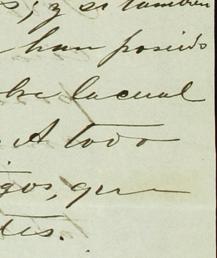 s; y si tambien
han poseido
la cual
A todo
gos, que
tes.